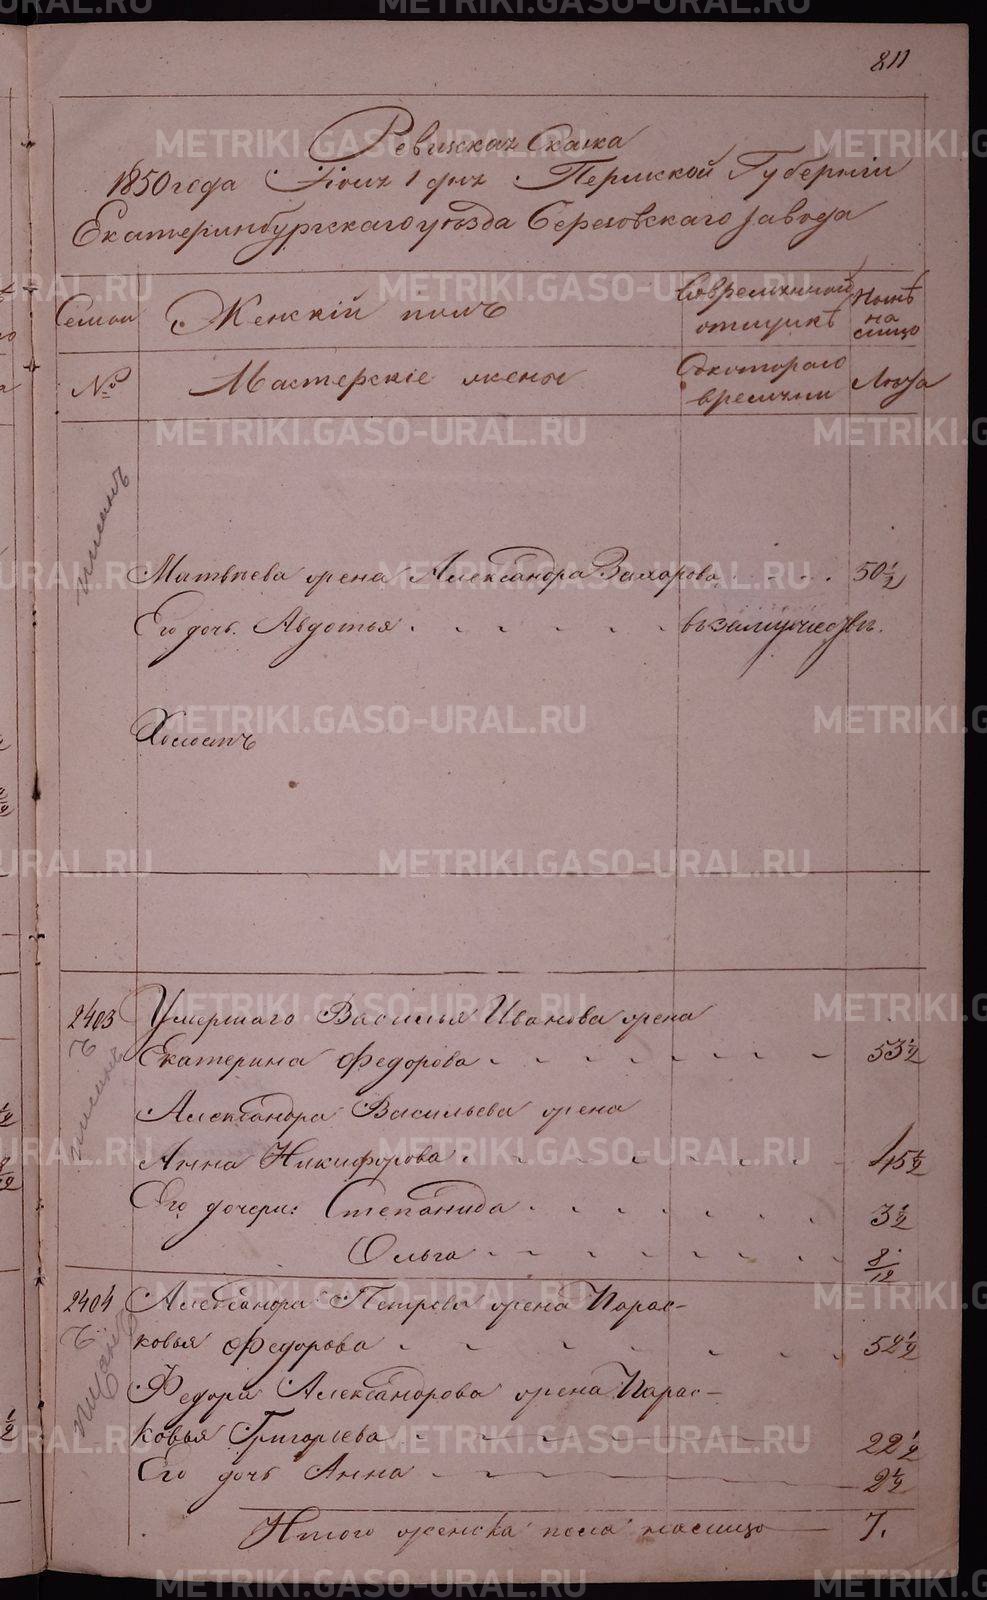 811
Ревизская Сказка
1850 года Iюля 1 дня Пермской Губернiи
Екатеринбургскаго уѣзда Березовскаго завода
Семьи
Женскiй полъ
Во временной отлучкѣ
Нынѣ на лицо
№
Мастерскiе жены
Съ котораго времяни
Лѣта
Матвѣева жена Александра Захарова 50 1/2
Его дочь Авдотья въ замужествѣ.
Холостъ
2403 Умершаго Василья Иванова жена
Екатерина Федорова 53 1/2
Александра Васильева жена
Анна Никифорова 45 1/2
Его дочери: Степанида 3 1/2
Ольга 8/12
2404 Александра Петрова жена Парас-
ковья Федорова 52 1/2
Федора Александрова жена Парас-
ковья Григорьева 22 1/2
Его дочь Анна 2 1/2
Итого женска пола на лицо 7.
METRIKI.GASO-URAL.RU